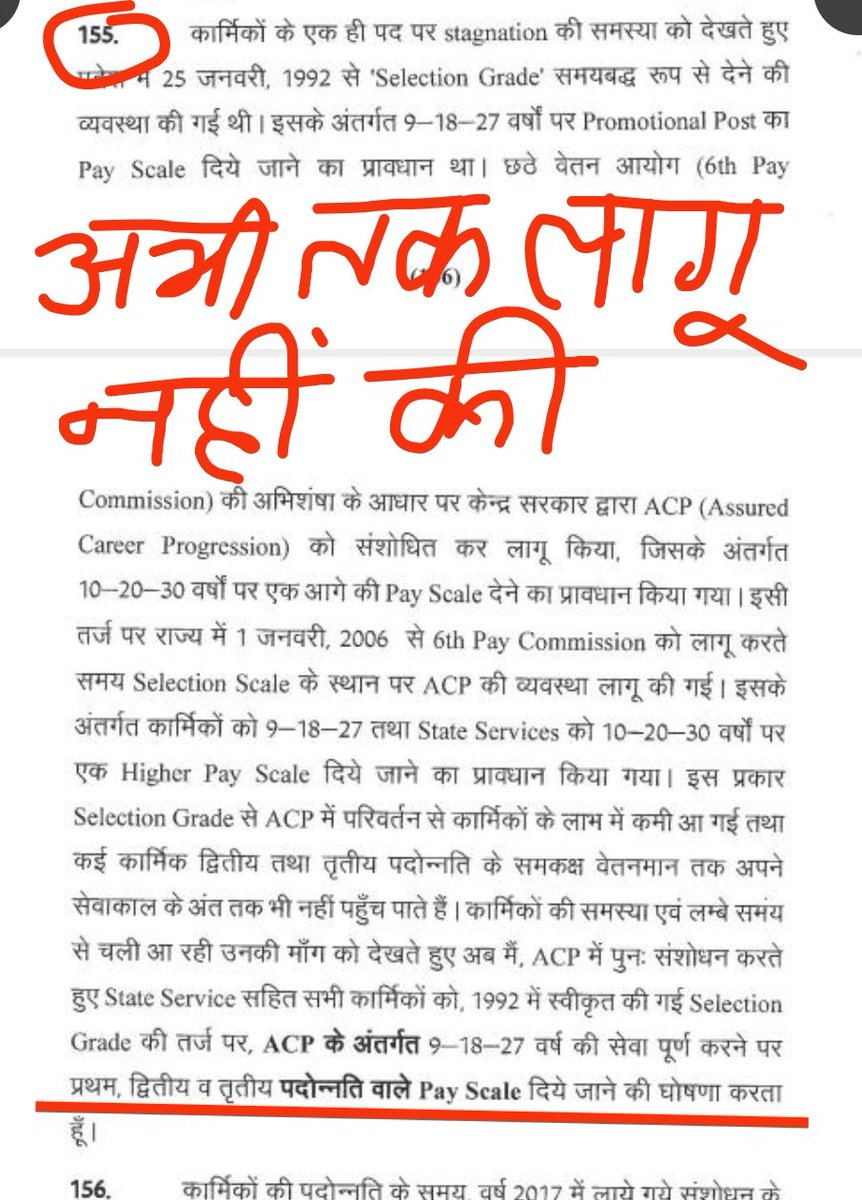 155. कार्मिकों के एक ही पद पर stagnation की समस्या को देखते हुए
में 25 जनवरी, 1992 से 'Selection Grade' समयबद्ध रूप से देने की
व्यवस्था की गई थी। इसके अंतर्गत 9–18–27 वर्षों पर Promotional Post का
Pay Scale दिये जाने का प्रावधान था। छठे वेतन आयोग (6th Pay
अभी तक लागू
नहीं की
Commission) की अभिशंषा के आधार पर केन्द्र सरकार द्वारा ACP (Assured
Career Progression) को संशोधित कर लागू किया, जिसके अंतर्गत
10–20–30 वर्षों पर एक आगे की Pay Scale देने का प्रावधान किया गया। इसी
तर्ज पर राज्य में 1 जनवरी, 2006 से 6th Pay Commission को लागू करते
समय Selection Scale के स्थान पर ACP की व्यवस्था लागू की गई। इसके
अंतर्गत कार्मिकों को 9–18–27 तथा State Services को 10–20–30 वर्षों पर
एक Higher Pay Scale दिये जाने का प्रावधान किया गया। इस प्रकार
Selection Grade से ACP में परिवर्तन से कार्मिकों के लाभ में कमी आ गई तथा
कई कार्मिक द्वितीय तथा तृतीय पदोन्नति के समकक्ष वेतनमान तक अपने
सेवाकाल के अंत तक भी नहीं पहुँच पाते हैं। कार्मिकों की समस्या एवं लम्बे समंय
से चली आ रही उनकी माँग को देखते हुए अब मैं, ACP में पुनः संशोधन करते
हुए State Service सहित सभी कार्मिकों को, 1992 में स्वीकृत की गई Selection
Grade की तर्ज पर, ACP के अंतर्गत 9–18–27 वर्ष की सेवा पूर्ण करने पर
प्रथम, द्वितीय व तृतीय पदोन्नति वाले Pay Scale दिये जाने की घोषणा करता
हूँ।
156. कार्मिकों की पदोन्नति के समय, वर्ष 2017 में लाये गये संशोधन के